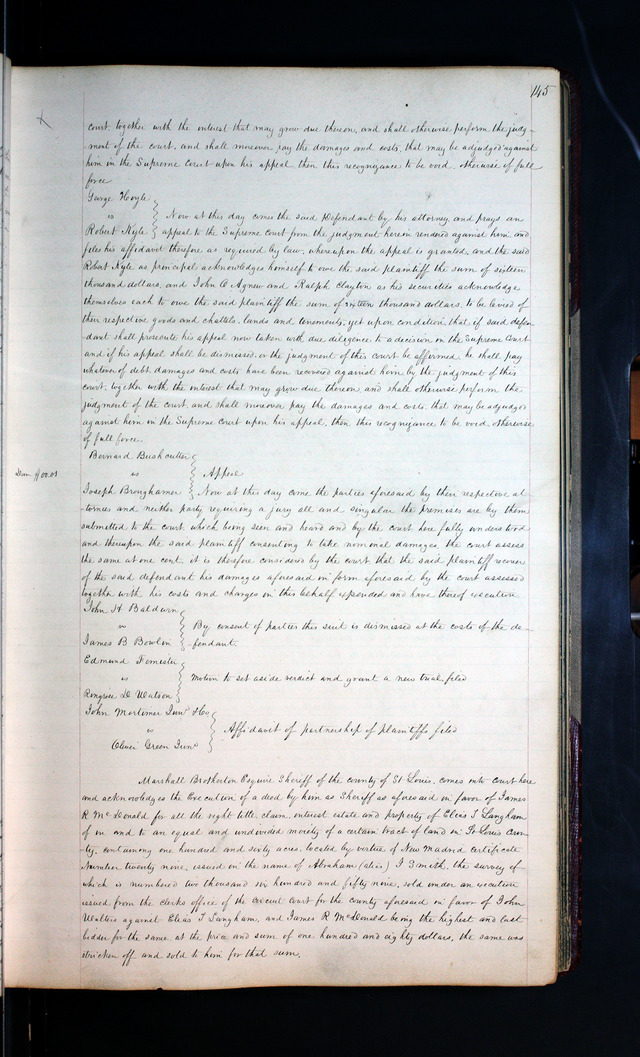 145
court, together with the interest that may grow due thereon, and shall otherwise perform the judg-
ment of the court, and shall moreover pay the damages and costs, that may be adjudged against
him in the Supreme Court upon his appeal, then this recognizance to be void, otherwise of full
force
George Hoyle
vs
Robert Kyle
Now at this day comes the said Defendant by his attorney, and prays an
appeal to the Supreme Court from the judgment herein rendered against him, and
files his affidavit therefore as required by law, whereupon the appeal is granted, and the said
Robert Kyle as principal acknowledges himself to owe the said plaintiff the sum of sixteen
thousand dollars, and John C Agnew and Ralph Clayton as his securities acknowledge
themselves each to owe the said plaintiff the sum of sixteen thousand dollars, to be levied of
their respective goods and chattels, lands and tenements, yet upon condition that if said defen
-dant shall prosecute his appeal now taken with due diligence to a decision in the Supreme Court
and if his appeal shall be dismissed, or the judgment of this court be affirmed, he shall pay
whatever of debt, damages and costs have been recovered against him by the judgment of this
court, together with the interest that may grow due thereon, and shall otherwise perform the
judgment of the court, and shall moreover pay the damages and costs, that may be adjudged
against him in the Supreme Court upon his appeal, then this recognizance to be void, otherwise
of full force.
Bernard Bushcutter
vs
Joseph Broughamer
Appeal
Now at this day come the parties aforesaid by their respective at
tornies and neither party requiring a jury all and singular the premises are by them
submitted to the court, which being seen and heard and by the court here fully understood
and thereupon the said plaintiff consenting to take nominal damages, the court assess
the same at one cent, it is therefore considered by the court that the said plaintiff recover
of the said defendant his damages aforesaid in form aforesaid by the court assessed
together with his costs and charges in this behalf expended and have thereof execution
John H Baldwin
vs
James B Bowlin
By consent of parties this suit is dismissed at the costs of the de-
fendant.
Edmund Forrister
vs
D Watson
Motion to set aside verdict and grant a new trial, filed
John Mortimer Junr & Co
vs
Oliver Green Junr
Affidavit of partnership of plaintiffs filed
Marshall Brotherton Esquire Sheriff of the county of St Louis, comes into court here
and acknowledges the Execution of a deed by him as Sheriff as aforesaid in favor of James
R McDonald for all the right title, claim, interest estate and property of Elias T Langham
of in and to an equal and undivided moiety of a certain tract of land in St Louis Coun
-ty, containing one hundred and sixty acres, located by virtue of New Madrid Certificate
Number twenty nine, issued in the name of Abraham (alias) J Smith, the survey of
which is numbered two thousand six hundred and fifty nine, sold under an execution
issued from the clerks office of the Circuit Court for the county aforesaid in favor of John
Walters against Elias T Langham, and James R McDonald being the highest and last
bidder for the same, at the price and sum of one hundred and eighty dollars, the same was
stricken off and sold to him for that sum.